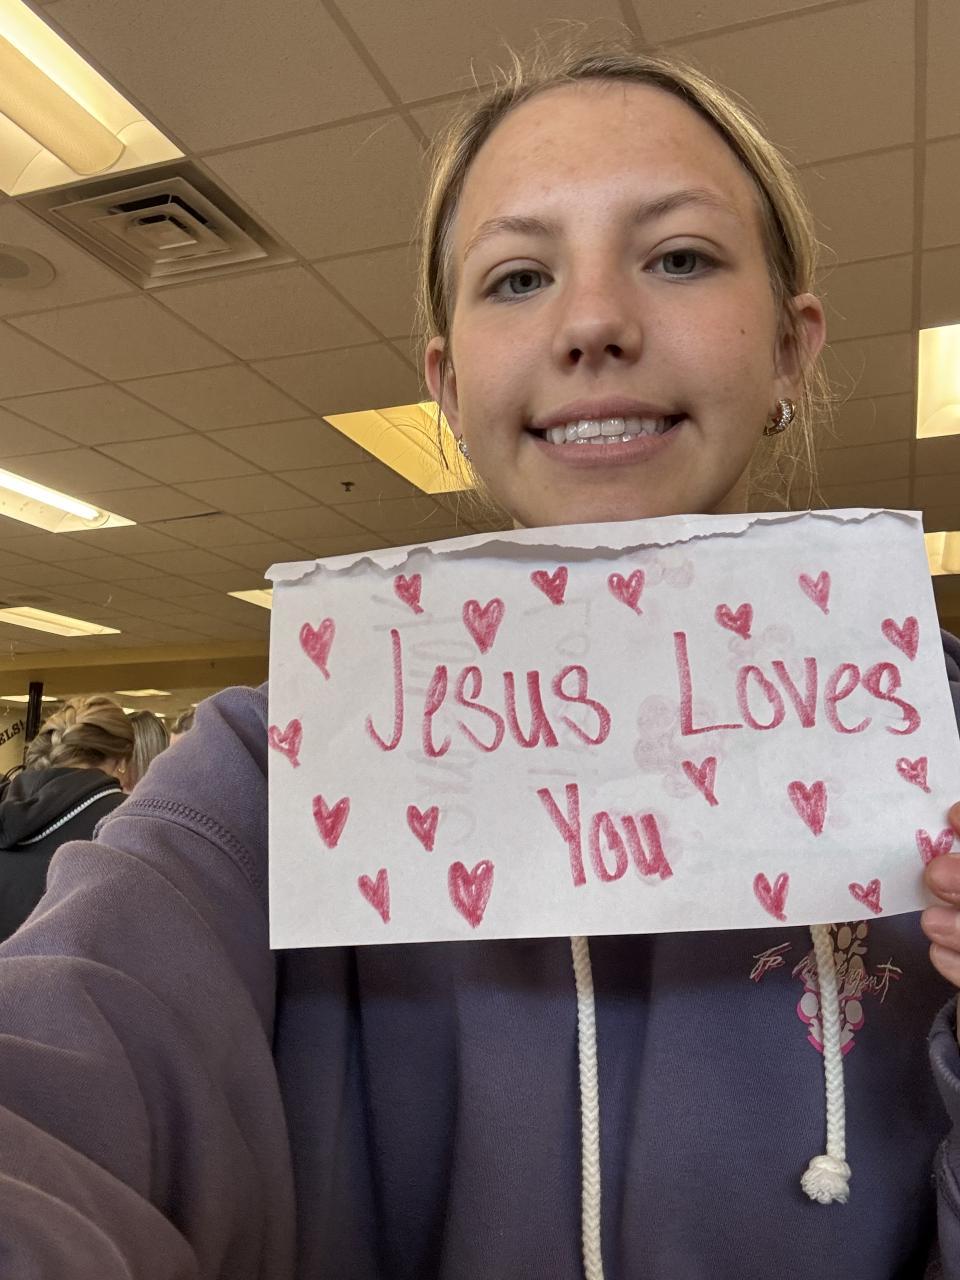 Jesus Loves
You